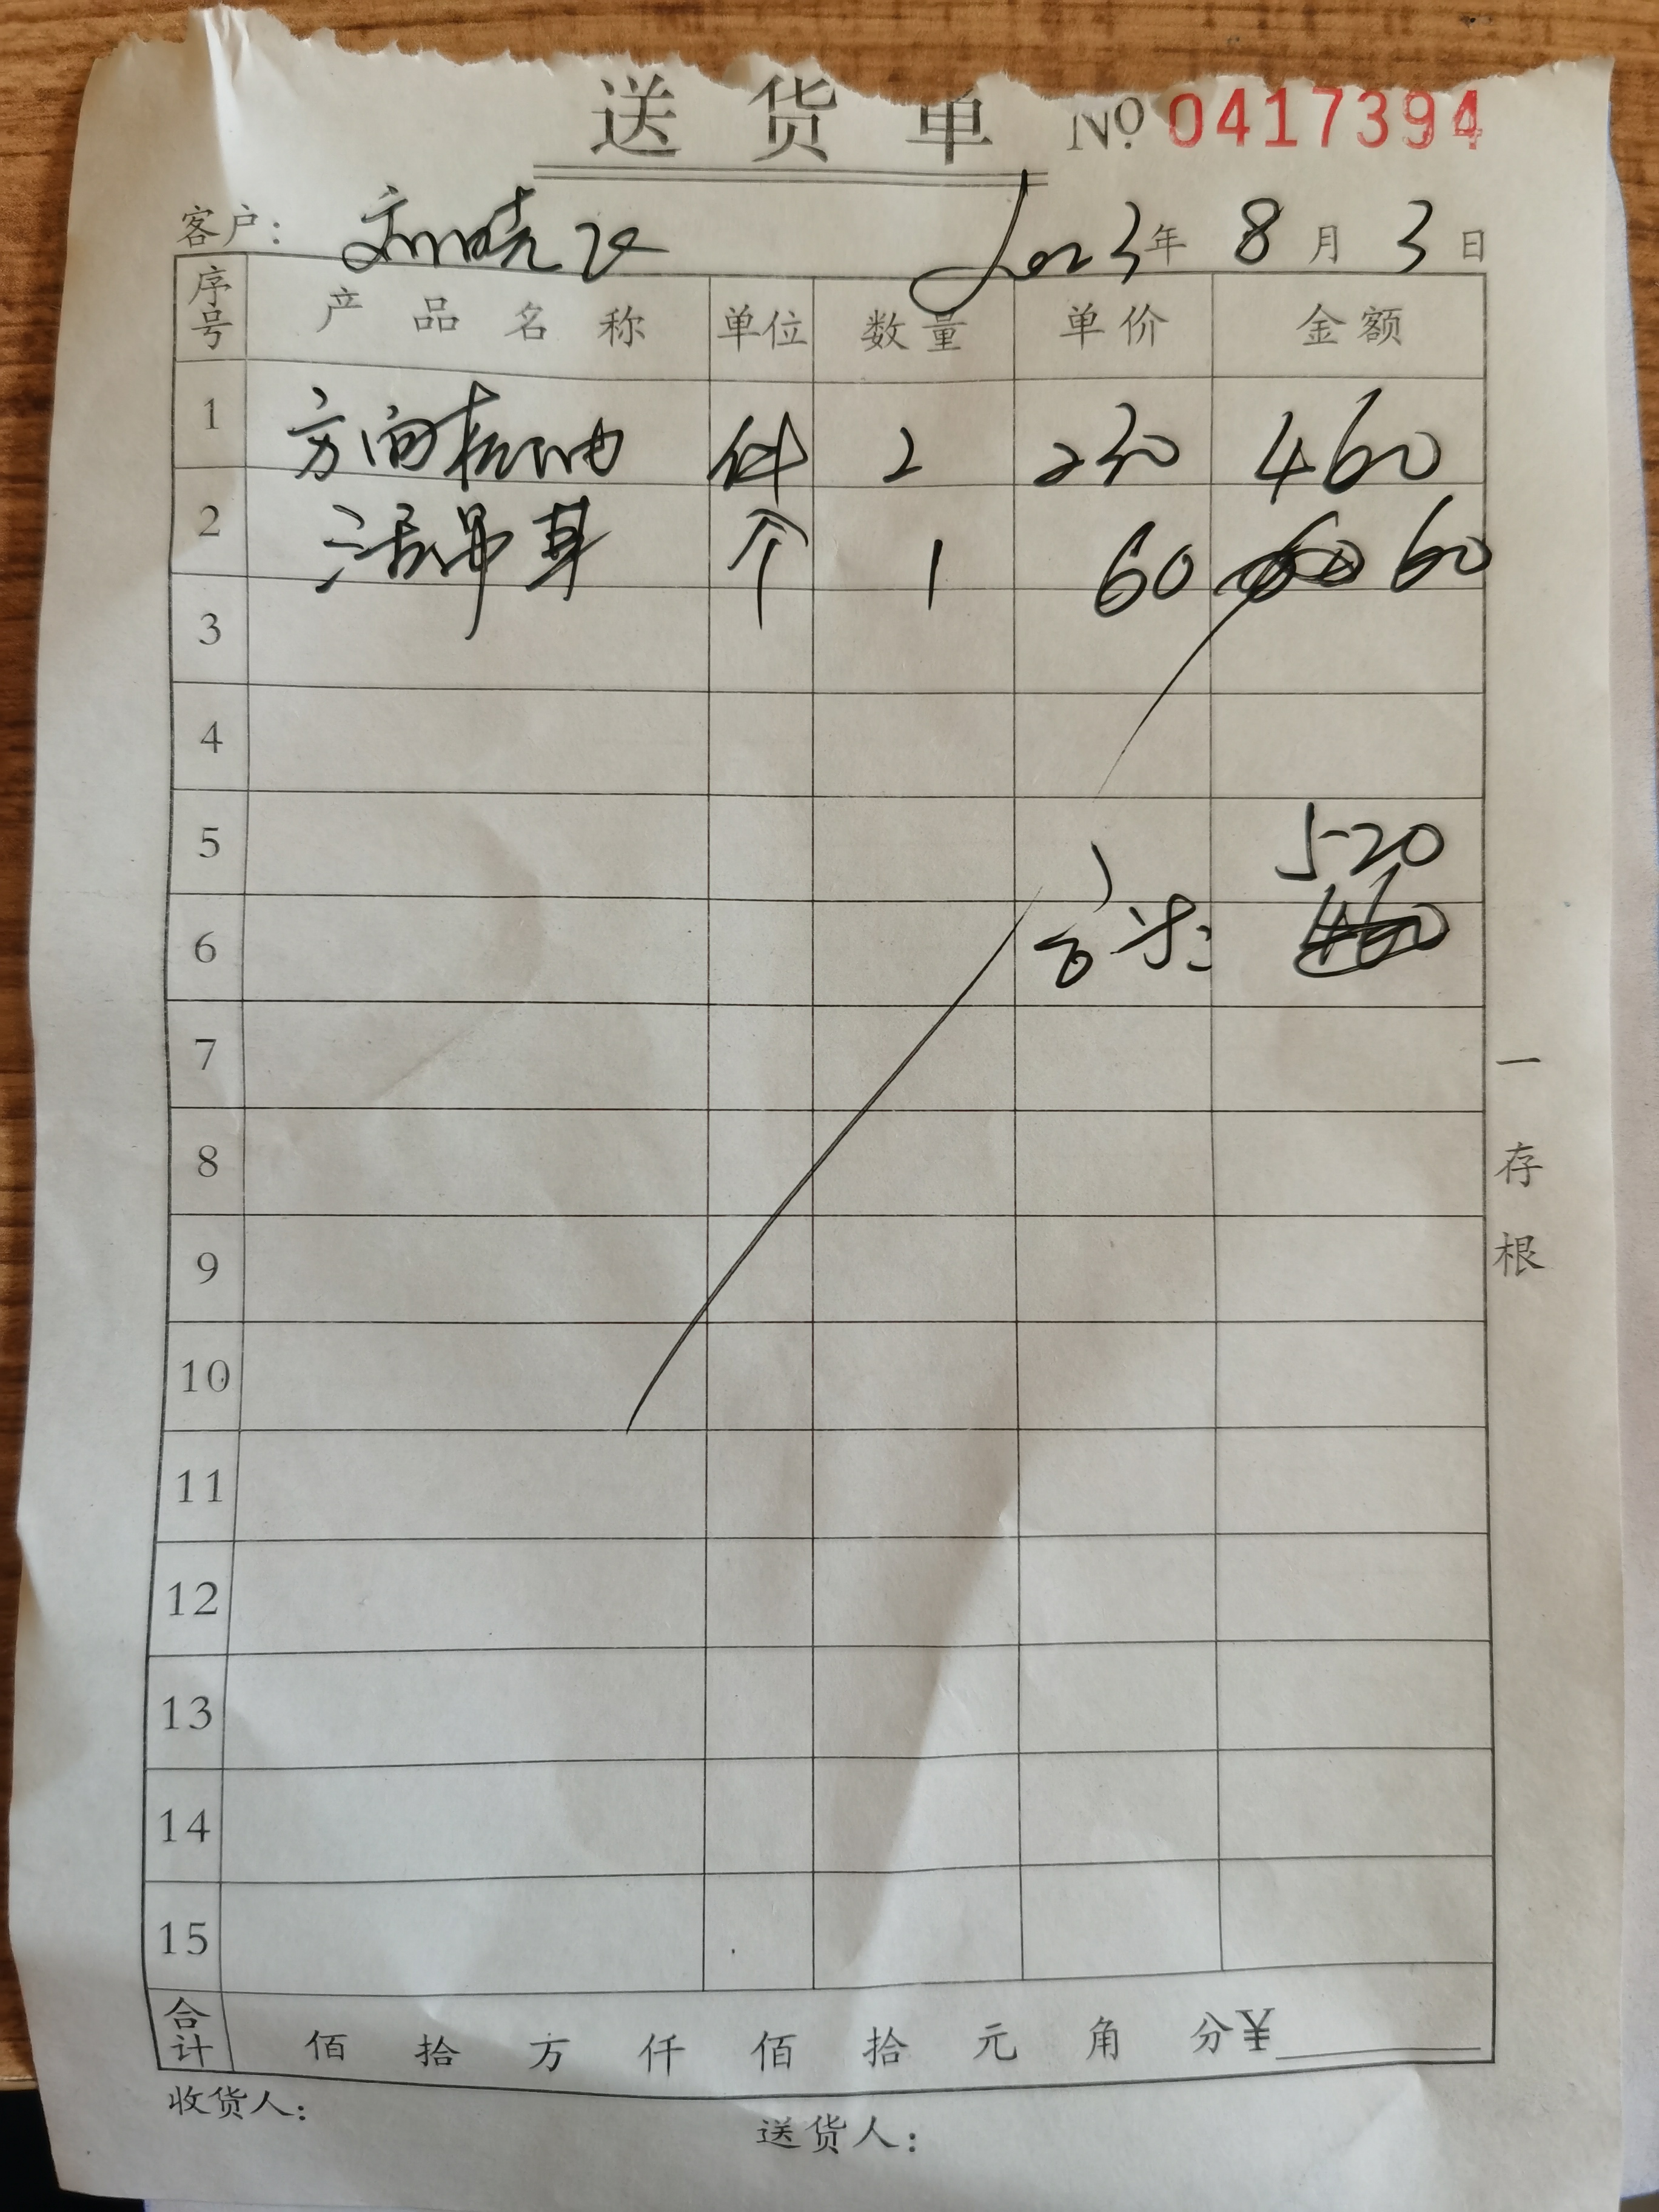 送货单 No 0417394
客户: 刘晓 2023年 8月 3日
序号 产品名称 单位 数量 单价 金额
1 方向机油 件 2 230 460
2 活吊耳 个 1 60 60
3
4
5 520
6 合计:
7
8
9
10
11
12
13
14
15
合计 佰 拾 万 仟 佰 拾 元 角 分¥
收货人: 送货人:
一存根